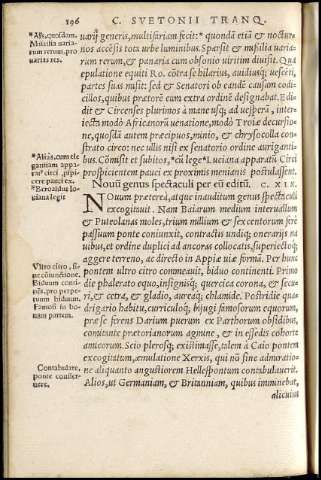 196
C. SVETONII TRANQ.
uarij generis, multifariam fecit: quondā etiā & noctur-
nos accēsis tota urbe luminibus. Sparsit & missilia uaria-
rum rerum, & panaria cum obsonio uiritim diuisit. Qua
epulatione equiti Ro. cōtra se hilarius, auidiusq; uescēti,
partes suas misit: sed & Senatori ob eandē causam codi-
cillos, quibus prætorē cum extra ordinē designabat. Edi-
dit & Circenses plurimos à mane usq; ad uesperā, inter-
iecta modò Africanarū uenatione, modò Troiæ decursio-
ne, quosdā autem præcipuos, minio, & chrysocolla con-
strato circo: nec ullis nisi ex senatorio ordine auriganti-
bus. Cōmisit et subitos, *cū lege* Luciana apparatū Circi
prospicientem pauci ex proximis menianis postulassent.
Nouū genus spectaculi per eū editū. C. XIX.
NOuum præterea, atque inauditum genus spectaculi
excogitauit. Nam Baiarum medium interuallum
& Puteolanas moles, trium millium & sexcentorum ferè
passuum ponte coniunxit, contractis undiq; onerarijs na
uibus, et ordine duplici ad ancoras collocatis, superiectoq;
aggere terreno, ac directo in Appiæ uiæ formā. Per hunc
pontem ultro citro commeauit, biduo continenti. Primo
die phalerato equo, insignisq; quercea corona, & secu-
ri, & cetra, & gladio, aureaq; chlamide. Postridie qua-
drigario habitu, curriculoq; biiugi famosorum equorum,
præ se ferens Darium puerum ex Parthorum obsidibus,
comitante prætorianorum agmine, & in essedis cohorte
amicorum. Scio plerosq; existimasse, talem à Caio pontem
excogitatum, æmulatione Xerxis, qui nō sine admiratio-
ne aliquanto angustiorem Hellespontum contabulauerit.
Alios, ut Germaniam, & Britanniam, quibus imminebat,
alicuius
*Al's, quosdam.
Missilia uaria-
rum rerum, pro
uarijs res.
*Aliâs, cum ele
gantium appa-
rat' circi
*Beroaldus Iu
liana legit
Vltro citro, si-
ne coniunctione.
Biduum conti-
nēs, pro perpe-
tuum biduum.
Famosi in bo-
nam partem.
Contabulare,
ponte conster-
nere.